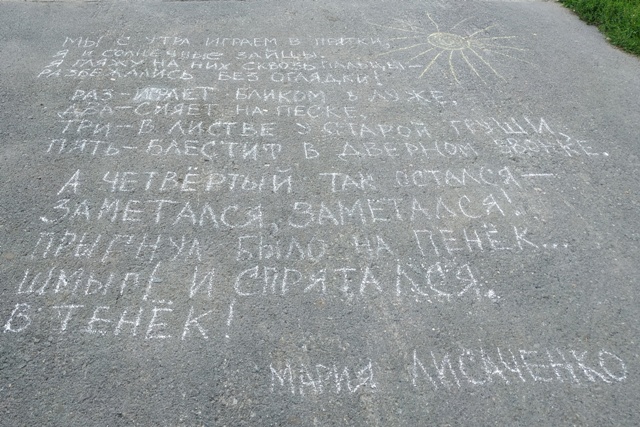 МЫ С УТРА ИГРАЕМ В ПРЯТКИ,
Я И СОЛНЕЧНЫЕ ЗАЙЦЫ.
Я ГЛЯЖУ НА НИХ СКВОЗЬ ПАЛЬЦЫ –
РАЗБЕЖАЛИСЬ БЕЗ ОГЛЯДКИ!
РАЗ – ИГРАЕТ БЛИКОМ В ЛУЖЕ,
ДВА – СИЯЕТ НА ПЕСКЕ,
ТРИ – В ЛИСТВЕ У СТАРОЙ ГРУШИ,
ПЯТЬ – БЛЕСТИТ В ДВЕРНОМ ЗВОНКЕ.
А ЧЕТВЁРТЫЙ ТАК ОСТАЛСЯ –
ЗАМЕТАЛСЯ, ЗАМЕТАЛСЯ!
ПРЫГНУЛ БЫЛО НА ПЕНЁК...
ШМЫГ! И СПРЯТАЛСЯ
В ТЕНЁК!
МАРИЯ ЛИСАЧЕНКО